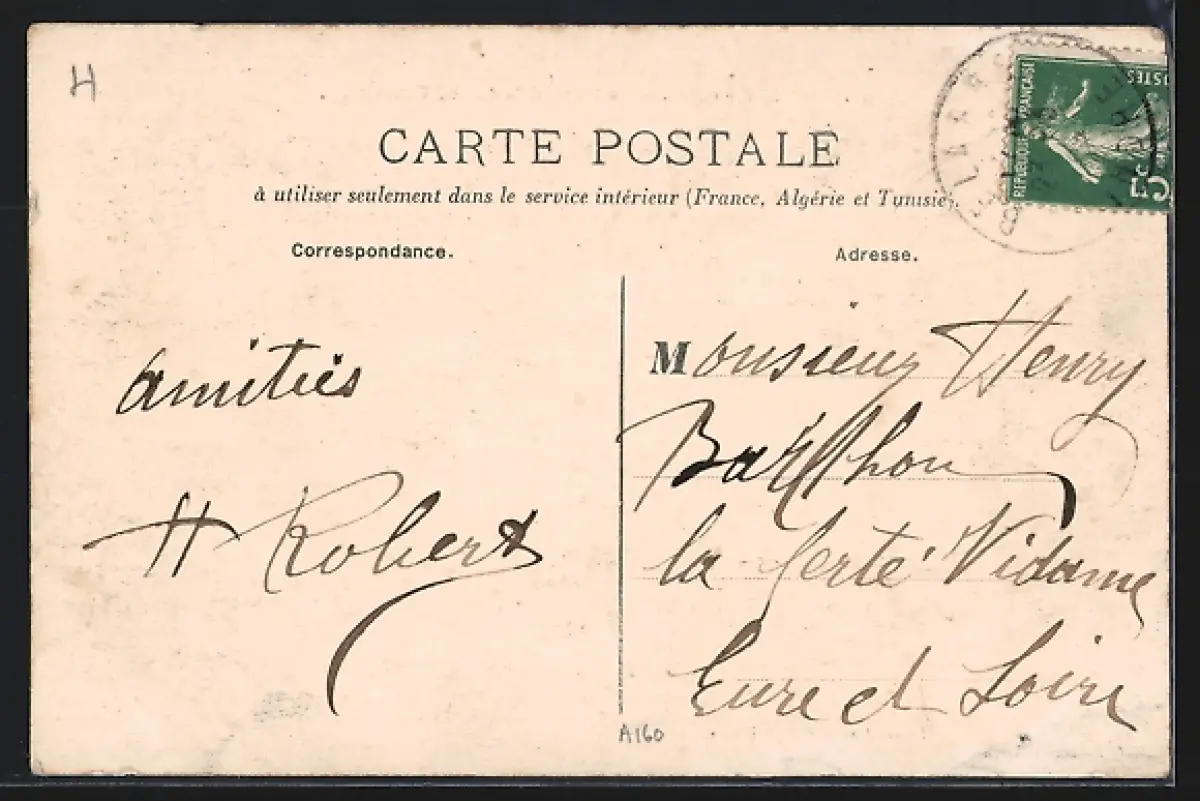 H
CARTE POSTALE
à utiliser seulement dans le service intérieur (France, Algérie et Tunisie).
Correspondance.
Adresse.
RÉPUBLIQUE FRANÇAISE
POSTES
5c
amitiés
H Robert
Monsieur Henry
Barthou
la ferté Vidame
Eure et Loire
A160